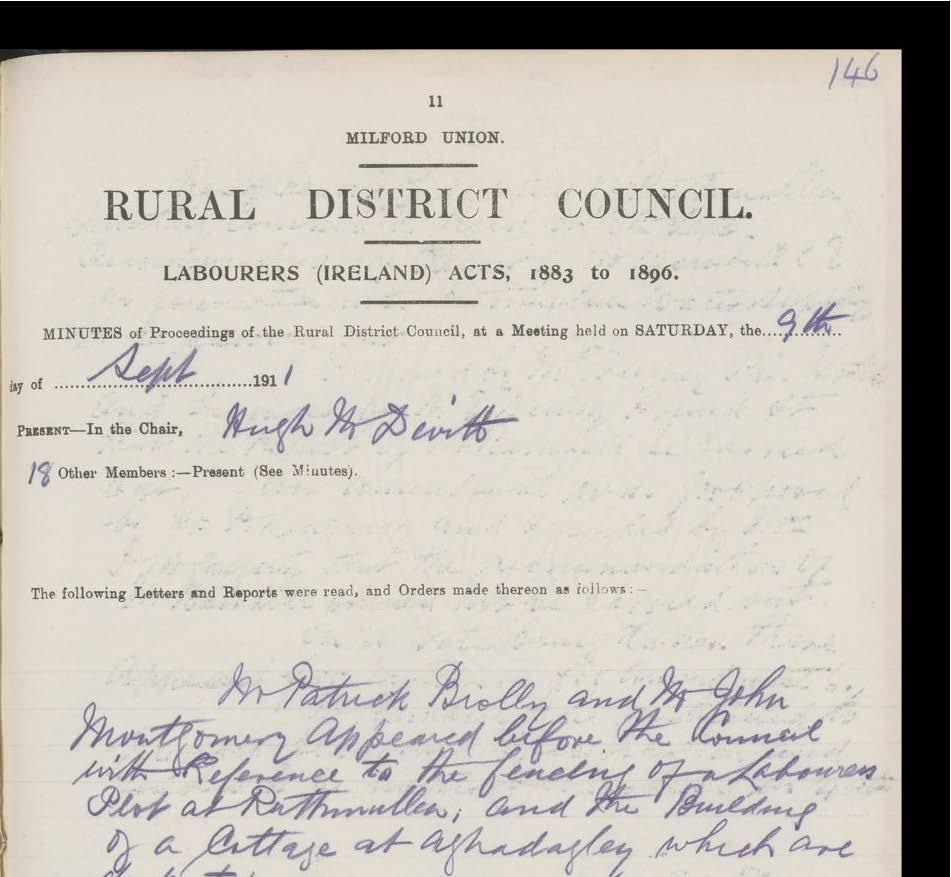 146
11
MILFORD UNION.
RURAL DISTRICT COUNCIL.
LABOURERS (IRELAND) ACTS, 1883 to 1896.
MINUTES of Proceedings of the Rural District Council, at a Meeting held on SATURDAY, the....9th....
day of ....Sept....1911
PRESENT—In the Chair, Hugh McDevitt
18 Other Members :—Present (See Minutes).
The following Letters and Reports were read, and Orders made thereon as follows:—
Mr Patrick Brolly and Mr John
Montgomery Appeared before the Council
with Reference to the fencing of a Labourers
Plot at Rathmullen, and the Building
of a Cottage at Aghadagley which are